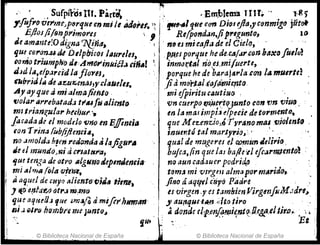 Suspiros III. Parte,
y sufro virgẽ, porque en mi te adores.
Ellos si sun primores
de amante? O digna Niña,
que coronas de Delphicos laureles,
como triumpho de Amor inuicta ciña!
did la, esparcid la flores,
cubrid la de azuzenas, y claueles.
Ay ay que à mi alma siento
volar arrebatada tras su aliento
mas triangular hechur
sacada de el modelo vno en Essencia
con Trina subsistencia,
no amolda bien redonda à la figura
de el mundo, ni criatura,
que tenga de otro alguna dependencia
mi alma sola viene,
à aquel de cuyo aliento vida tiene,
y no enlaza otra mano
que aquella que amasò mi ser humano
ni à otro hombre me junto,
que
Emblema IIII. 185
que al que con Dios essa, y conmigo junto
Respondan, si pregunto, 10
no es mi casa de el Cielo,
pues porque he de casar con baxo suelo
inmortal no es mi suerte,
porque he de barajarla con la muerte?
si à mortal casamiento
mi espiritu cautiuo
vn cuerpo muerto junto con vn viuo
en la mas impia especie de tormento,
que Mezenzio, ò Tyrano mas violento
inuentò tal martyrio,
qual de mugeres el comun delirio
busca, sin que las baste el escarmiento
no aun cadauer podrido
toma mi virgen alma por marido,
sino à aquel cuyo Padre
es virgen y es tambien Virgen su Madre,
y aunque tan alto tiro
à donde el pensamiento llega el tiro.
Et
© Biblioteca Nacional de España
© Biblioteca Nacional de España